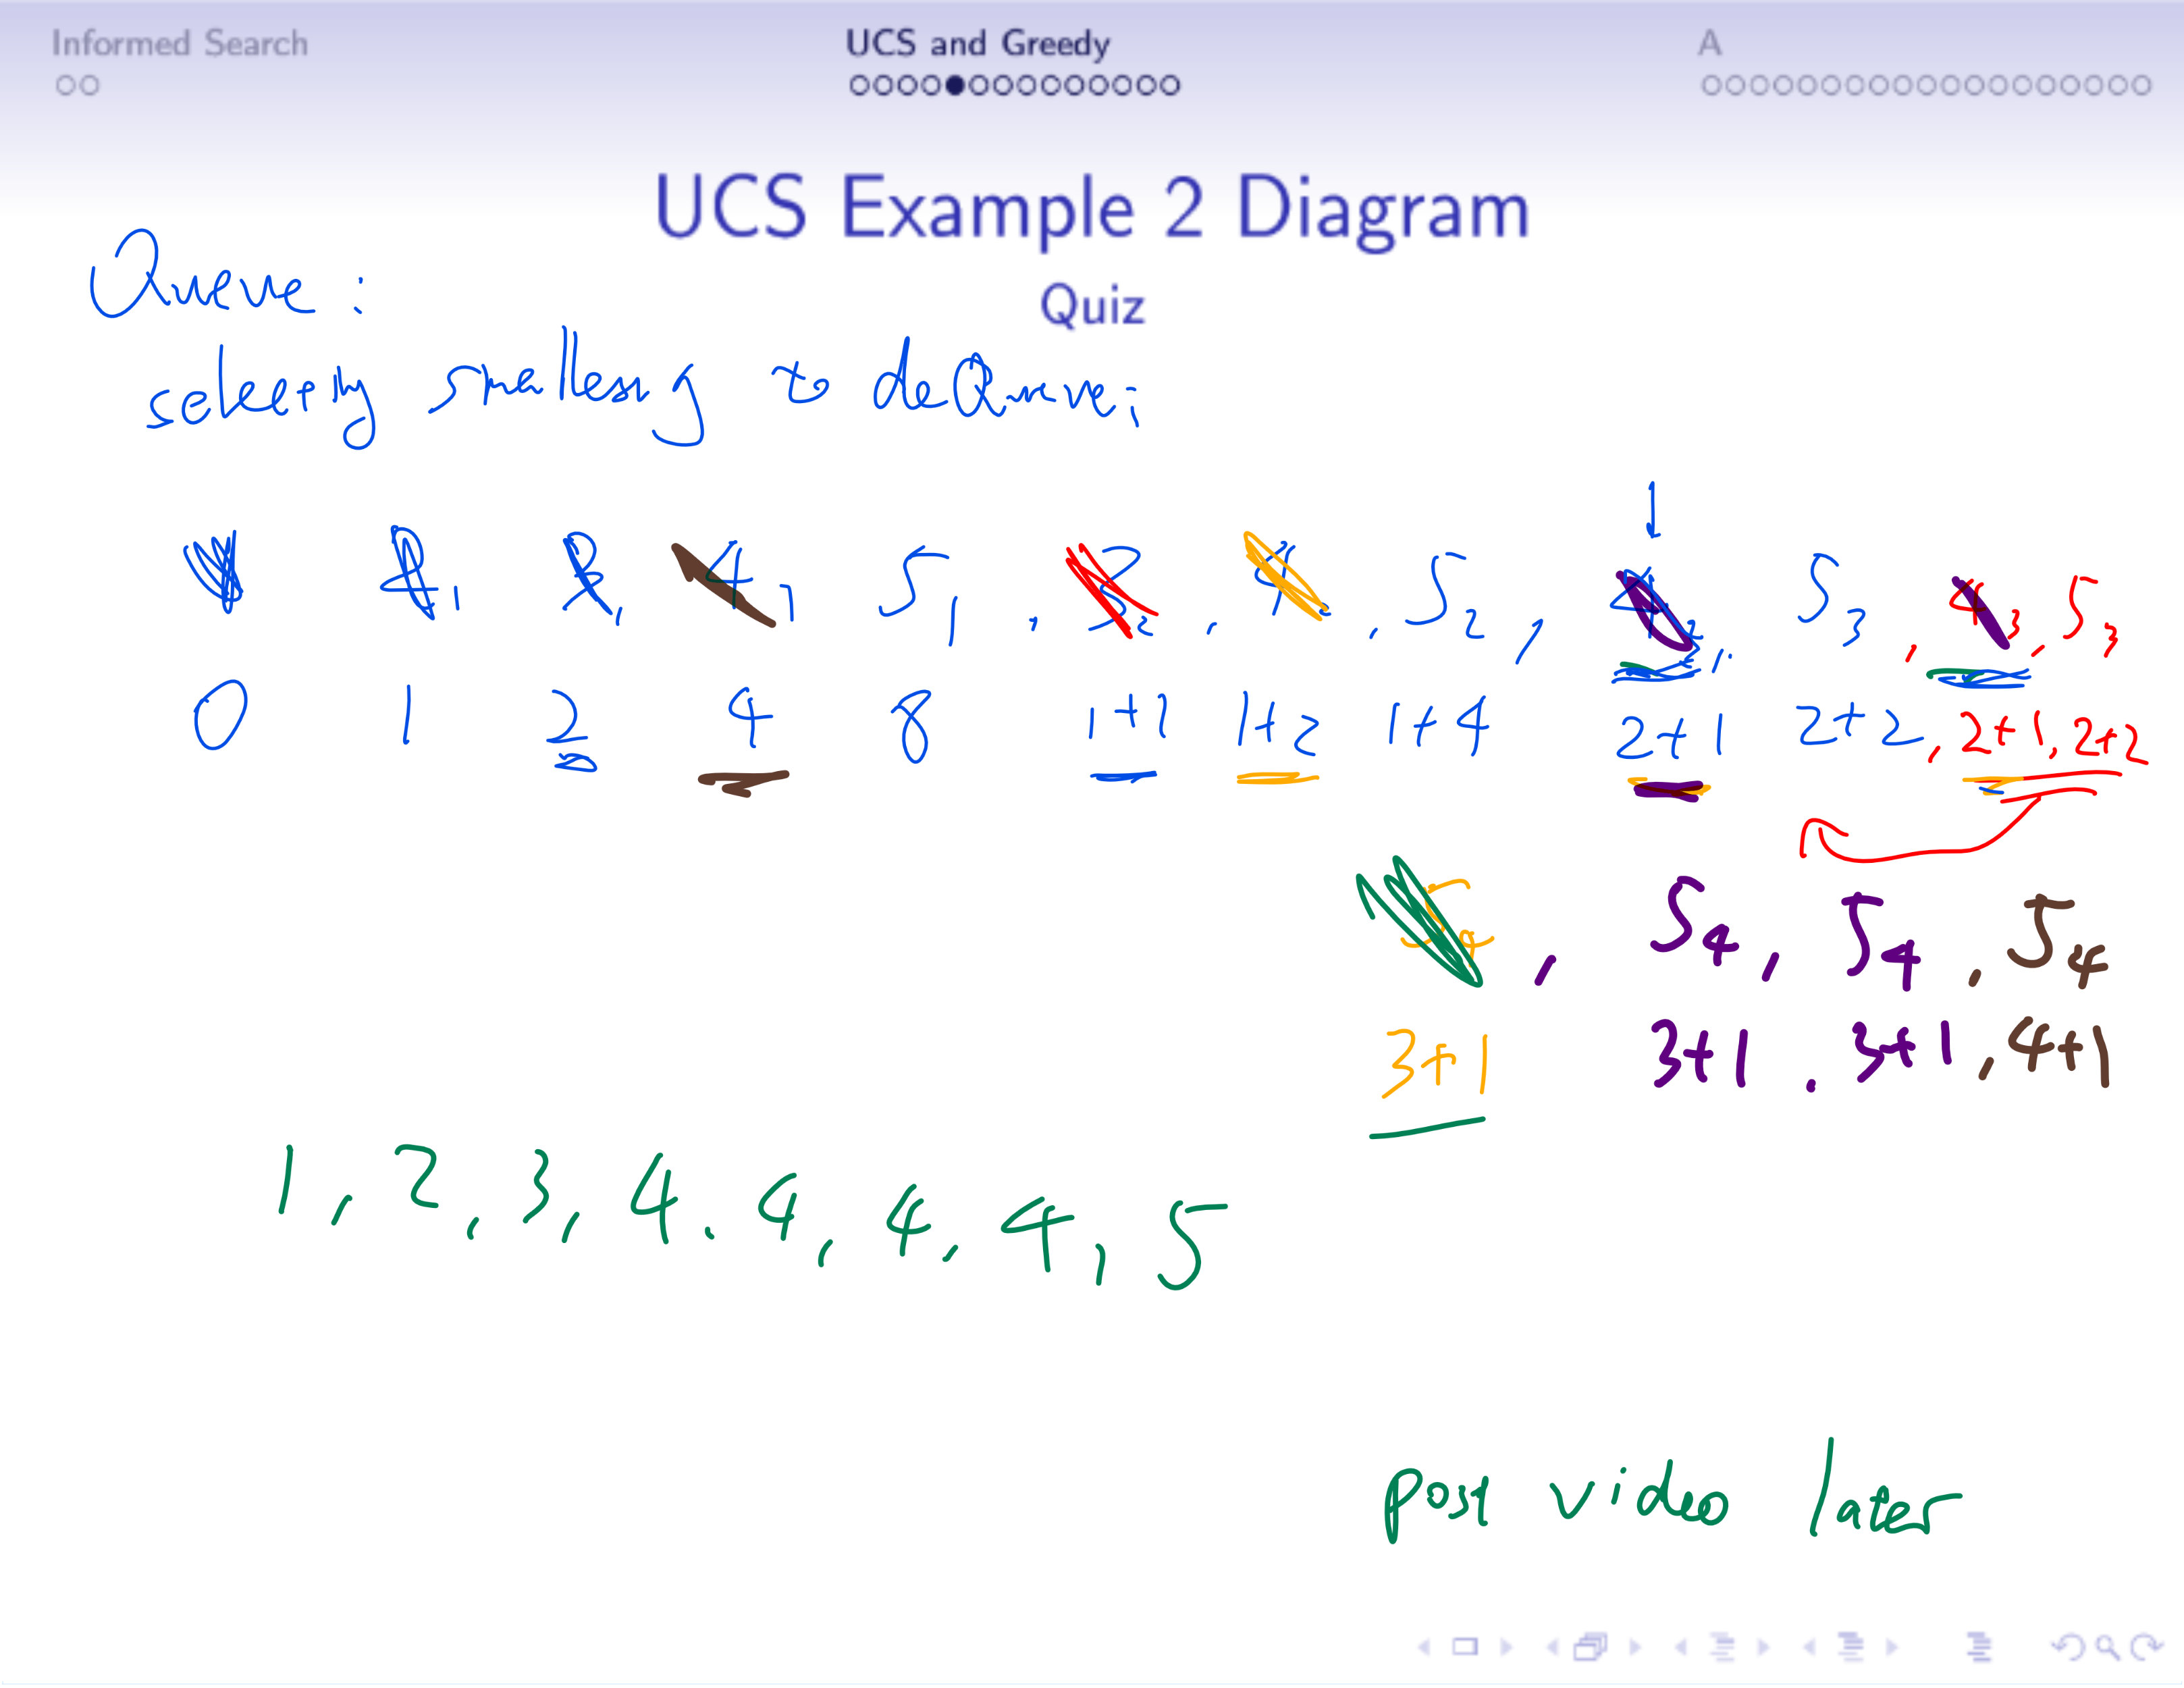 Informed Search UCS and Greedy A
UCS Example 2 Diagram
Quiz
Queue:
to deQueue;
5₁ , 3₂ , 5₂ , 5₃ , 4₃ , 5₃
0 1 2 4 8 1+1 1+2 1+4 2+1 2+2 , 2+1 , 2+2
5₄ , 5₄ , 5₄ , 5₄
3+1 3+1 , 3+1 , 4+1
1 , 2 , 3 , 4 , 4 , 4 , 4 , 5
post video later